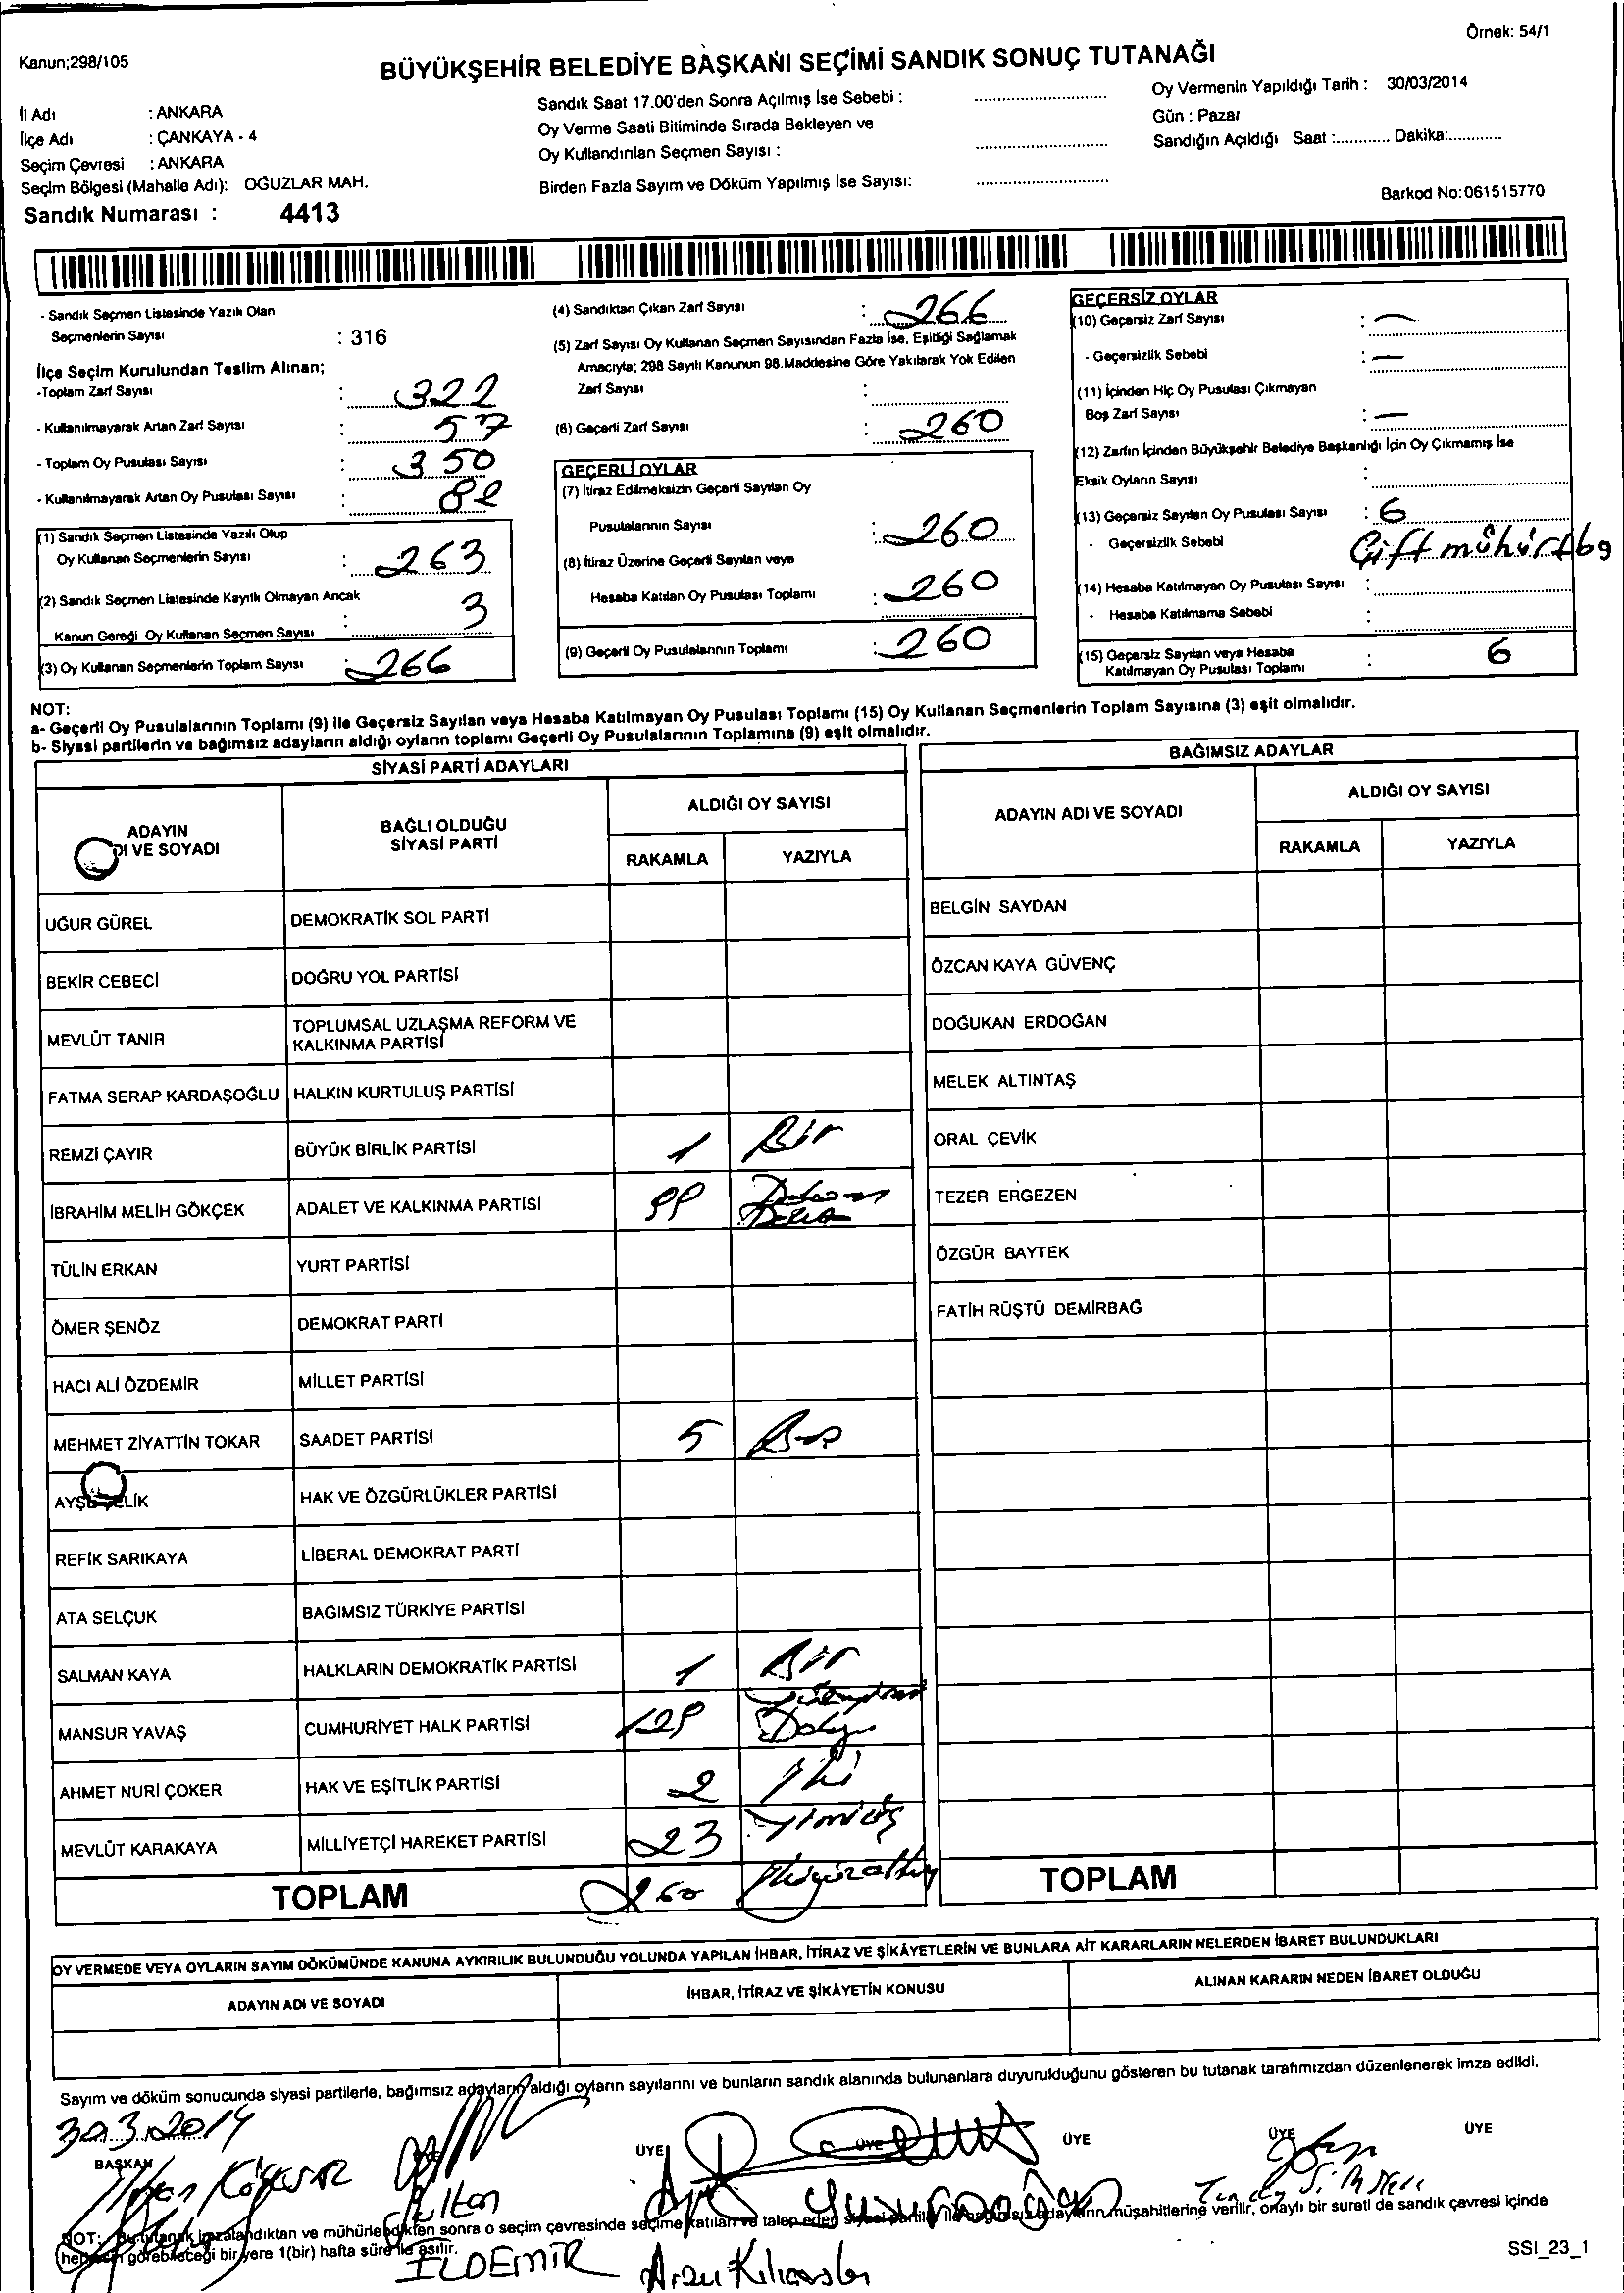 Örnek: 54/1
Kanun;298/105
BÜYÜKŞEHİR BELEDİYE BAŞKANI SEÇİMİ SANDIK SONUÇ TUTANAĞI
İl Adı : ANKARA
İlçe Adı : ÇANKAYA - 4
Seçim Çevresi : ANKARA
Seçim Bölgesi (Mahalle Adı): OĞUZLAR MAH.
Sandık Numarası : 4413
Sandık Saat 17.00'den Sonra Açılmış İse Sebebi :
Oy Verme Saati Bitiminde Sırada Bekleyen ve
Oy Kullandırılan Seçmen Sayısı :
Birden Fazla Sayım ve Döküm Yapılmış İse Sayısı:
Oy Vermenin Yapıldığı Tarih : 30/03/2014
Gün : Pazar
Sandığın Açıldığı Saat :............ Dakika:............
Barkod No:061515770
- Sandık Seçmen Listesinde Yazılı Olan
Seçmenlerin Sayısı : 316
İlçe Seçim Kurulundan Teslim Alınan;
-Toplam Zarf Sayısı : 322
- Kullanılmayarak Artan Zarf Sayısı : 57
- Toplam Oy Pusulası Sayısı : 350
- Kullanılmayarak Artan Oy Pusulası Sayısı :
(1) Sandık Seçmen Listesinde Yazılı Olup
Oy Kullanan Seçmenlerin Sayısı : 263
(2) Sandık Seçmen Listesinde Kayıtlı Olmayan Ancak
Kanun Gereği Oy Kullanan Seçmen Sayısı : 3
(3) Oy Kullanan Seçmenlerin Toplam Sayısı : 266
(4) Sandıktan Çıkan Zarf Sayısı : 266
(5) Zarf Sayısı Oy Kullanan Seçmen Sayısından Fazla İse, Eşitliği Sağlamak
Amacıyla; 298 Sayılı Kanunun 98.Maddesine Göre Yakılarak Yok Edilen
Zarf Sayısı :
(6) Geçerli Zarf Sayısı : 260
GEÇERLİ OYLAR
(7) İtiraz Edilmeksizin Geçerli Sayılan Oy
Pusulalarının Sayısı : 260
(8) İtiraz Üzerine Geçerli Sayılan veya
Hesaba Katılan Oy Pusulası Toplamı : 260
(9) Geçerli Oy Pusulalarının Toplamı : 260
GEÇERSİZ OYLAR
(10) Geçersiz Zarf Sayısı : —
- Geçersizlik Sebebi : —
(11) İçinden Hiç Oy Pusulası Çıkmayan
Boş Zarf Sayısı : —
(12) Zarfın İçinden Büyükşehir Belediye Başkanlığı İçin Oy Çıkmamış İse
Eksik Oyların Sayısı :
(13) Geçersiz Sayılan Oy Pusulası Sayısı : 6
- Geçersizlik Sebebi Çift
(14) Hesaba Katılmayan Oy Pusulası Sayısı :
- Hesaba Katılmama Sebebi :
(15) Geçersiz Sayılan veya Hesaba
Katılmayan Oy Pusulası Toplamı : 6
NOT:
a- Geçerli Oy Pusulalarının Toplamı (9) ile Geçersiz Sayılan veya Hesaba Katılmayan Oy Pusulası Toplamı (15) Oy Kullanan Seçmenlerin Toplam Sayısına (3) eşit olmalıdır.
b- Siyasi partilerin ve bağımsız adayların aldığı oyların toplamı Geçerli Oy Pusulalarının Toplamına (9) eşit olmalıdır.
SİYASİ PARTİ ADAYLARI
ADAYIN
DI VE SOYADI
BAĞLI OLDUĞU
SİYASİ PARTİ
ALDIĞI OY SAYISI
RAKAMLA YAZIYLA
UĞUR GÜREL DEMOKRATİK SOL PARTİ
BEKİR CEBECİ DOĞRU YOL PARTİSİ
MEVLÜT TANIR TOPLUMSAL UZLAŞMA REFORM VE
KALKINMA PARTİSİ
FATMA SERAP KARDAŞOĞLU HALKIN KURTULUŞ PARTİSİ
REMZİ ÇAYIR BÜYÜK BİRLİK PARTİSİ 1 Bir
İBRAHİM MELİH GÖKÇEK ADALET VE KALKINMA PARTİSİ 99
TÜLİN ERKAN YURT PARTİSİ
ÖMER ŞENÖZ DEMOKRAT PARTİ
HACI ALİ ÖZDEMİR MİLLET PARTİSİ
MEHMET ZİYATTİN TOKAR SAADET PARTİSİ 5 Beş
AYŞE ÇELİK HAK VE ÖZGÜRLÜKLER PARTİSİ
REFİK SARIKAYA LİBERAL DEMOKRAT PARTİ
ATA SELÇUK BAĞIMSIZ TÜRKİYE PARTİSİ
SALMAN KAYA HALKLARIN DEMOKRATİK PARTİSİ 1 Bir
MANSUR YAVAŞ CUMHURİYET HALK PARTİSİ 129
AHMET NURİ ÇOKER HAK VE EŞİTLİK PARTİSİ 2 İki
MEVLÜT KARAKAYA MİLLİYETÇİ HAREKET PARTİSİ 23 Yirmiüç
TOPLAM 260 İkiyüzaltmış
BAĞIMSIZ ADAYLAR
ADAYIN ADI VE SOYADI
ALDIĞI OY SAYISI
RAKAMLA YAZIYLA
BELGİN SAYDAN
ÖZCAN KAYA GÜVENÇ
DOĞUKAN ERDOĞAN
MELEK ALTINTAŞ
ORAL ÇEVİK
TEZER ERGEZEN
ÖZGÜR BAYTEK
FATİH RÜŞTÜ DEMİRBAĞ
TOPLAM
OY VERMEDE VEYA OYLARIN SAYIM DÖKÜMÜNDE KANUNA AYKIRILIK BULUNDUĞU YOLUNDA YAPILAN İHBAR, İTİRAZ VE ŞİKÂYETLERİN VE BUNLARA AİT KARARLARIN NELERDEN İBARET BULUNDUKLARI
ADAYIN ADI VE SOYADI
İHBAR, İTİRAZ VE ŞİKÂYETİN KONUSU
ALINAN KARARIN NEDEN İBARET OLDUĞU
Sayım ve döküm sonucunda siyasi partilerle, bağımsız adayların aldığı oyların sayılarını ve bunların sandık alanında bulunanlara duyurulduğunu gösteren bu tutanak tarafımızdan düzenlenerek imza edildi.
30.3.2014
BAŞKAN ÜYE ÜYE ÜYE ÜYE ÜYE
NOT: Bu tutanak imzalandıktan ve mühürlendikten sonra o seçim çevresinde seçime katılan ve talep eden siyasi partiler ile bağımsız adayların müşahitlerine verilir, onaylı bir sureti de sandık çevresi içinde
herkesin görebileceği bir yere 1(bir) hafta süre ile asılır.
İLDEMİR Arzu Kılıçarslan
SSI_23_1